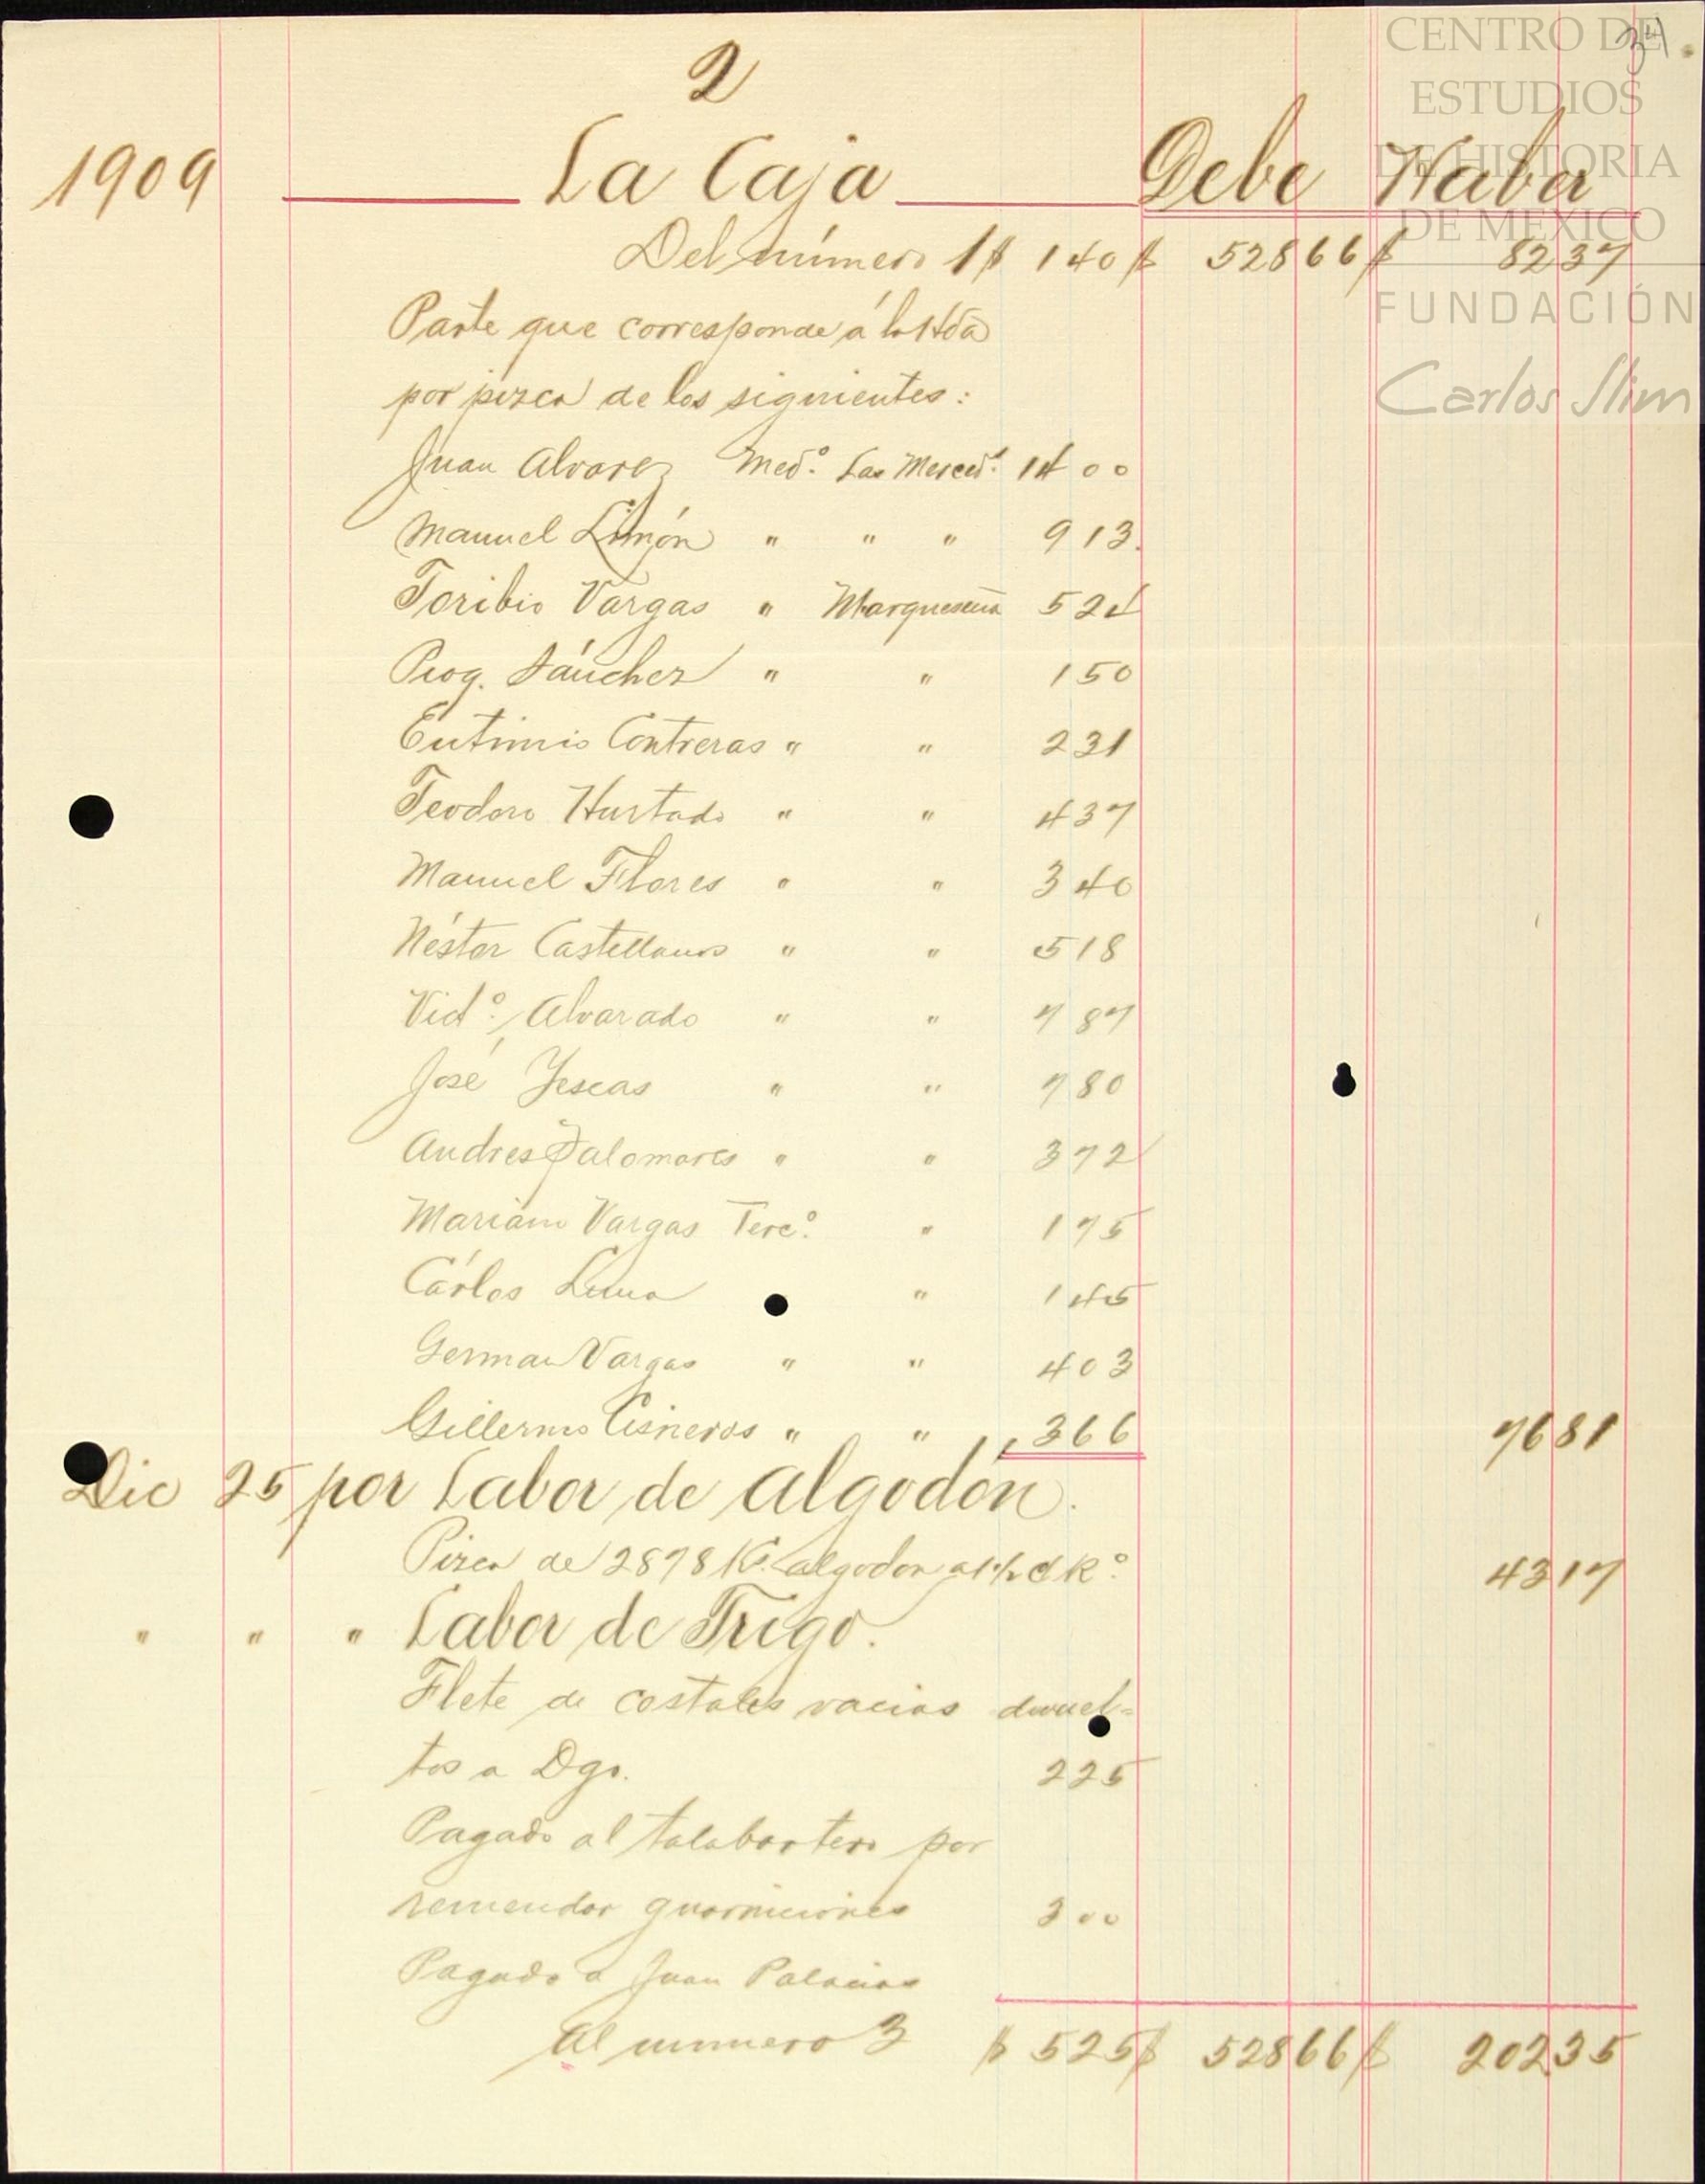 CENTRO DE
ESTUDIOS
DE HISTORIA
DE MÉXICO
FUNDACIÓN
Carlos Slim
34.
2
1909 La Caja Debe Haber
Del número 1 $ 140 $ 52866 $ 8237
Parte que corresponde á la Hda
por pizca de los siguientes:
Juan Alvarez Med.º Las Merced.s 1400
Manuel Limón " " " 913.
Toribio Vargas " Marqueseña 524
Prog. Sánchez " " 150
Eutimio Contreras " " 231
Teodoro Hurtado " " 437
Manuel Flores " " 340
Néstor Castellanos " " 518
Vict.º Alvarado " " 787
José Yescas " " 780
Andres Palomares " " 372
Mariano Vargas Terc.º " 175
Cárlos Luna " 145
German Vargas " " 403
Gillermo Cisneros " " 366 7681
Dic 25 por Labor de Algodón.
Pizca de 2878 K.s algodon a 1½ c K.º 4317
" " " Labor de Trigo.
Flete de costales vacios devuel=
tos a Dgo. 225
Pagado al talabartero por
remendar guarniciones 300
Pagado a Juan Palacios
Al numero 3 $ 525 $ 52866 $ 20235